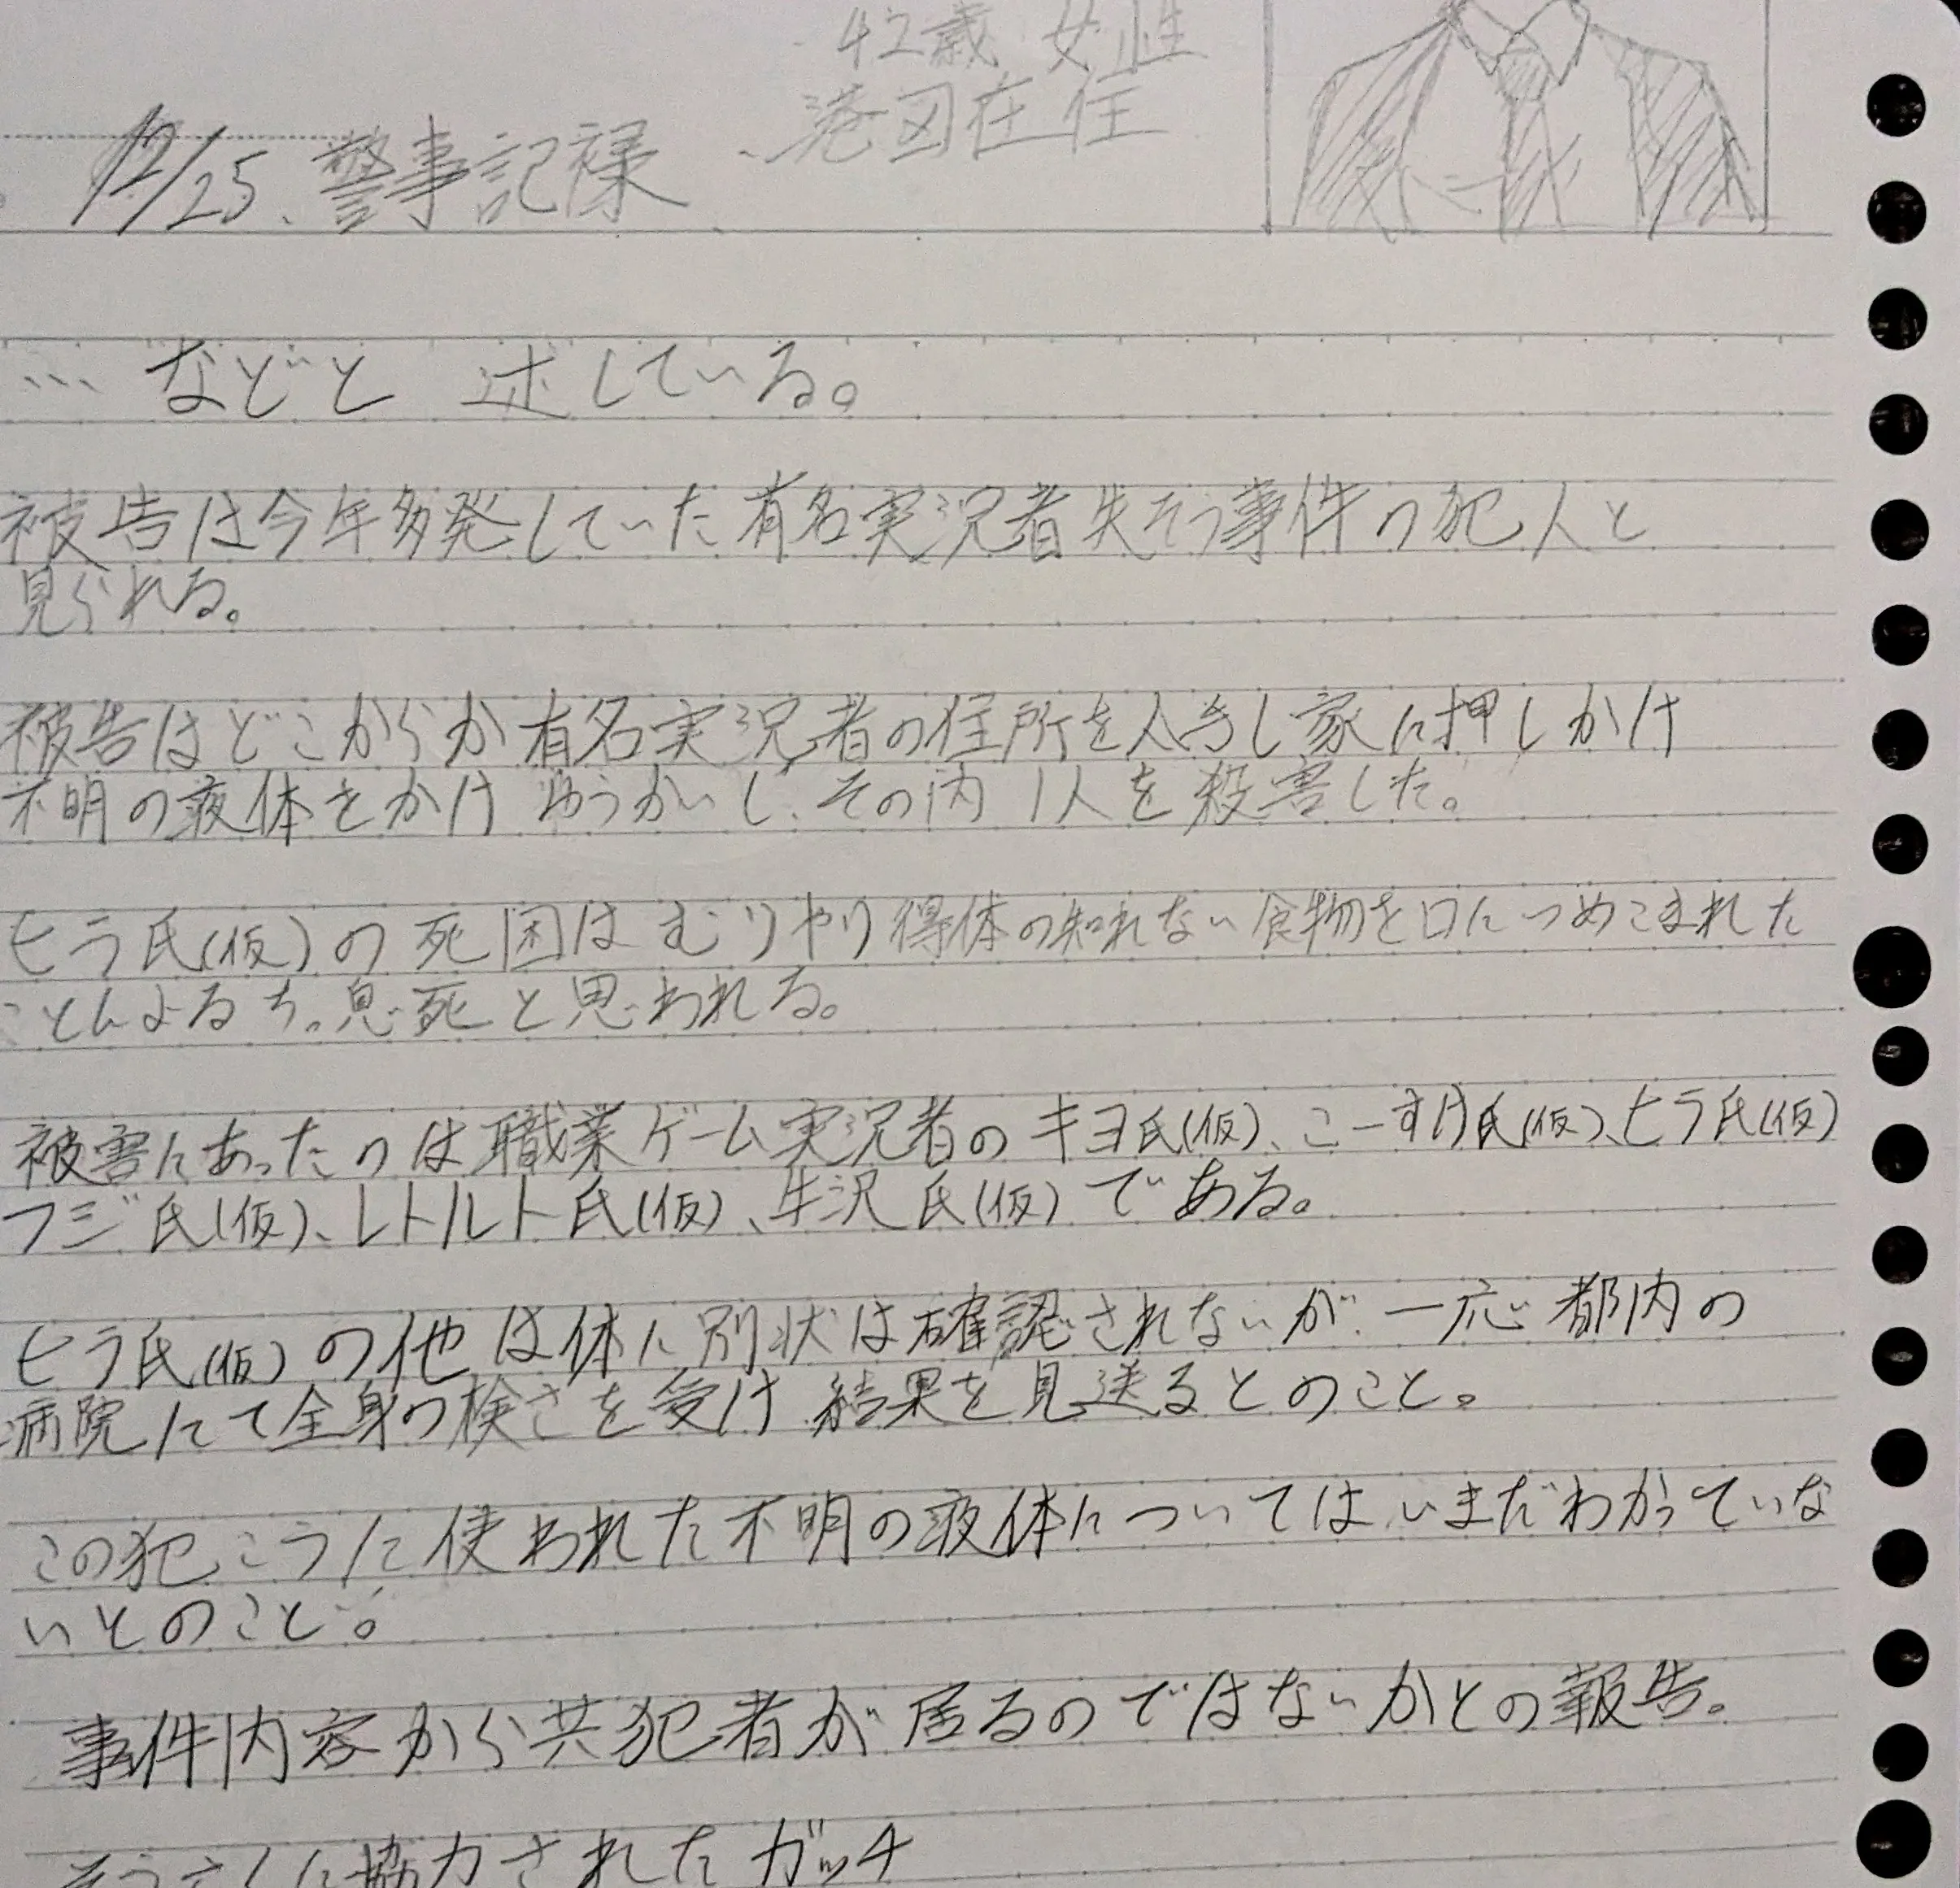 42歳 女性
港区在住
12/25、警事記禄
… などと 述している。
被告は今年多発していた有名実況者失そう事件の犯人と
見られる。
被告はどこからか有名実況者の住所を入手し家に押しかけ
不明の液体をかけ ゆうかいし、その内 1人を殺害した。
ヒラ氏(仮)の死因は むりやり得体の知れない食物を口につめこまれた
ことによるちっ息死と思われる。
被害にあったのは職業ゲーム実況者のキヨ氏(仮)、こーすけ氏(仮)、ヒラ氏(仮)
フジ氏(仮)、レトルト氏(仮)、牛沢氏(仮)である。
ヒラ氏(仮)の他は体に別状は確認されないが、一応都内の
病院にて全身の検さを受け 結果を見送るとのこと。
この犯こうに使われた不明の液体についてはいまだわかっていな
いとのこと。
事件内容から共犯者が居るのではないかとの報告。
そうさくに協力されたガッチ